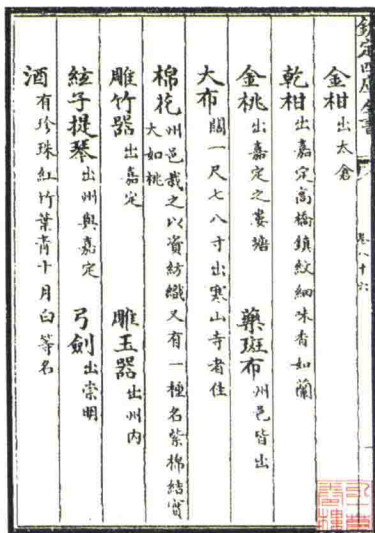 欽定四庫全書
卷八十六
金柑出太倉
乾柑出嘉定高橋鎮紋細味香如蘭
金桃出嘉定之婁塘 藥斑布州邑皆出
大布闊一尺七八寸出寒山寺者佳
棉花州邑栽之以資紡織又有一種名紫棉結實大如桃
雕竹器出嘉定 雕玉器出州内
絃子提琴出州與嘉定 弓劍出崇明
酒有珍珠紅竹葉青十月白等名